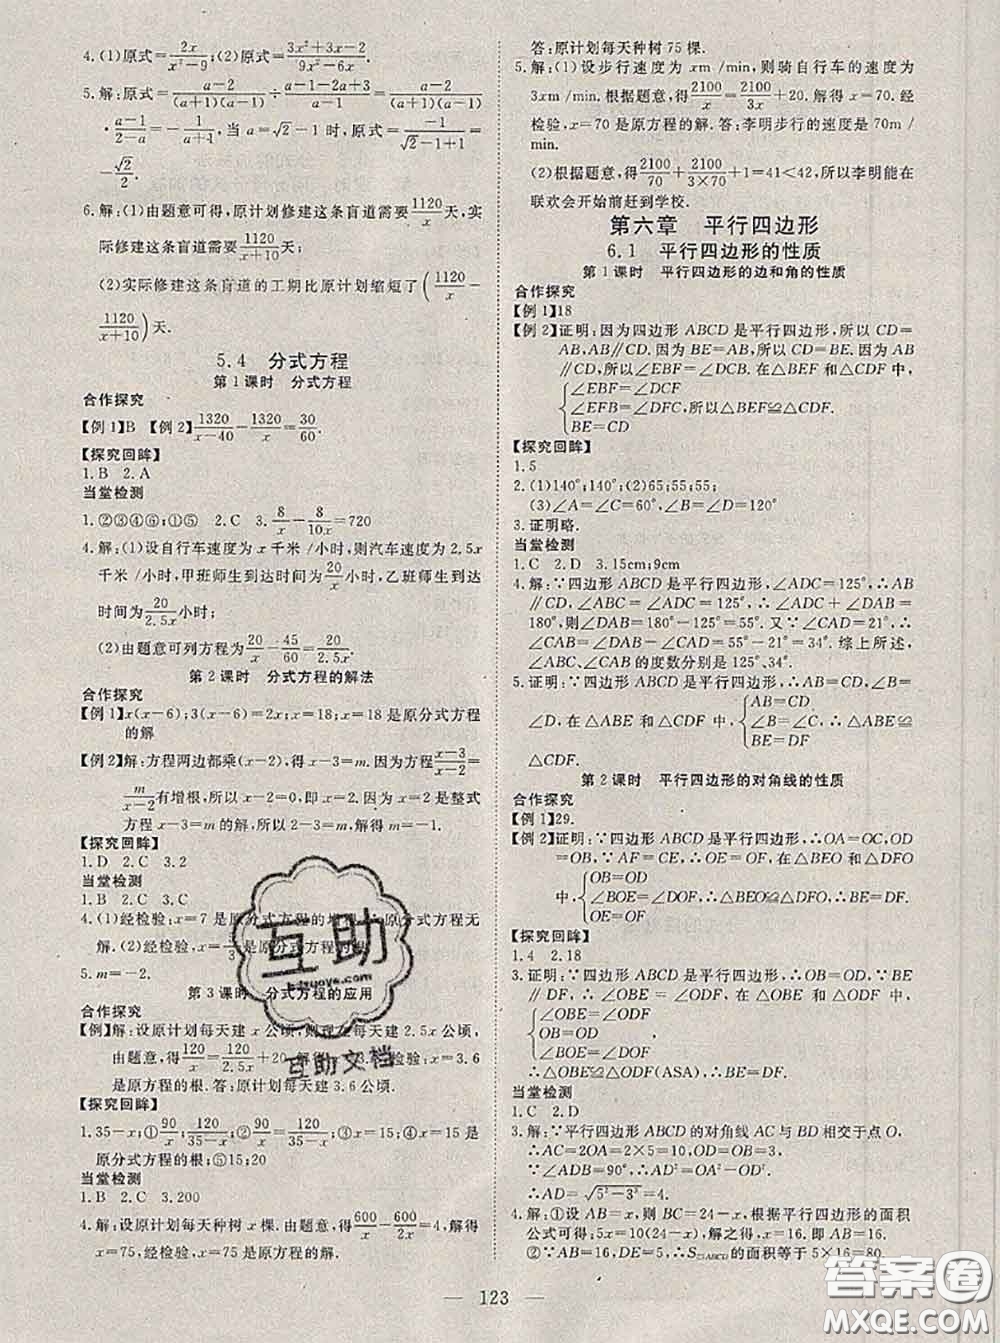 4.(1)原式=2x/(x²-9);(2)原式=(3x²+3x-2)/(9x²-6x).
5.解:原式=(a-2)/((a+1)(a-1))÷(a-1-2a+3)/(a-1)=(a-2)/((a+1)(a-1))
·(a-1)/(2-a)=-1/(a+1),当 a=√2-1时,原式=-1/(√2-1+1)=
-√2/2.
6.解:(1)由题意可得,原计划修建这条盲道需要1120/x天,实
际修建这条盲道需要1120/(x+10)天;
(2)实际修建这条盲道的工期比原计划缩短了(1120/x-
1120/(x+10))天.
5.4 分式方程
第1课时 分式方程
合作探究
【例1】B 【例2】1320/(x-40)-1320/x=30/60.
【探究回眸】
1.B 2.A
当堂检测
1.②③④⑥;①⑤ 2.C 3.8/x-8/10x=720
4.解:(1)设自行车速度为 x 千米/小时,则汽车速度为 2.5x
千米/小时,甲班师生到达时间为20/x小时,乙班师生到达
时间为20/2.5x小时;
(2)由题意可列方程为20/x-45/60=20/2.5x.
第2课时 分式方程的解法
合作探究
【例1】x(x-6);3(x-6)=2x;x=18;x=18是原分式方程
的解
【例2】解:方程两边都乘(x-2),得x-3=m.因为方程(x-3)/(x-2)=
m/(x-2)有增根,所以 x-2=0,即 x=2.因为 x=2 是整式
方程 x-3=m的解,所以2-3=m,解得 m=-1.
【探究回眸】
1.D 2.C 3.2
当堂检测
1.B 2.C 3.C
4.(1)经检验,x=7是原分式方程的增根,原分式方程无
解.(2)经检验,x= 是原分式方程的解.
5.m=-2.
第3课时 分式方程的应用
合作探究
【例】解:设原计划每天建 x 公顷,则现在每天建 2.5x 公顷,
由题意,得120/x=120/2.5x+20.解得x=3.6.经检验:x=3.6
是原方程的根.答:原计划每天建 3.6公顷.
【探究回眸】
1.35-x;①90/x;120/(35-x);②90/x=120/(35-x);③x=15;④x=15是
原分式方程的根;⑤15;20
当堂检测
1.B 2.C 3.200
4.解:设原计划每天种树 x 棵.由题意,得600/x-600/2x=4.解得
x=75,经检验,x=75是原方程的解.
答:原计划每天种树 75棵.
5.解:(1)设步行速度为 xm/min,则骑自行车的速度为
3xm/min.根据题意,得2100/x=2100/3x+20.解得 x=70.经
检验,x=70 是原方程的解.答:李明步行的速度为70m/
min.
(2)根据题意,得2100/70+2100/(3×70)+1=41<42,所以李明能在
联欢会开始前赶到学校.
第六章 平行四边形
6.1 平行四边形的性质
第1课时 平行四边形的边和角的性质
合作探究
【例1】18
【例2】证明:因为四边形 ABCD 是平行四边形,所以 CD=
AB,AB∥CD.因为 BE=AB,所以 CD=BE.因为 AB
∥CD,所以∠EBF=∠DCB.在△BEF 和△CDF 中,
{∠EBF=∠DCF
∠EFB=∠DFC,所以△BEF≌△CDF.
BE=CD
【探究回眸】
1.5
2.(1)140°;140°;(2)65;55;55;
(3)∠A=∠C=60°,∠B=∠D=120°
3.证明略.
当堂检测
1.C 2.D 3.15cm;9cm
4.解:∵四边形 ABCD是平行四边形,∠ADC=125°,∴AB
∥CD,∠ABC=∠ADC=125°,∴∠ADC+∠DAB=
180°,则∠DAB=180°-125°=55°.又∵∠CAD=21°,∴
∠CAB=∠DAB-∠CAD=55°-21°=34°.综上所述,
∠ABC、∠CAB的度数分别是125°、34°.
5.证明:∵四边形 ABCD 是平行四边形,∴AB=CD,∠B=
∠D,在△ABE 和△CDF中,{AB=CD
∠B=∠C,∴△ABE≌
BE=DF
△CDF.
第2课时 平行四边形的对角线的性质
合作探究
【例1】29.
【例2】证明:∵四边形 ABCD 是平行四边形,∴OA=OC,OD
=OB,∵AF=CE,∴OE=OF,在△BEO 和△DFO
中,{OB=OD
∠BOE=∠DOF,∴△BEO≌△DFO,∴BE=DF.
OE=OF
【探究回眸】
1.4 2.18
3.证明:∵四边形 ABCD 是平行四边形,∴OB=OD,∵BE
∥DF,∴∠OBE=∠ODF,在△OBE 和△ODF 中,
{∠OBE=∠ODF
OB=OD
∠BOE=∠DOF
∴△OBE≌△ODF(ASA),∴BE=DF.
当堂检测
1.C 2.D
3.解:∵平行四边形 ABCD 的对角线 AC 与 BD 相交于点O,
∴AC=2OA=2×5=10,OD=OB=3.
∵∠ADB=90°,∴AD²=OA²-OD²,
∴AD=√(5²-3²)=4.
4.解:①设 AB=x,则 BC=24-x,根据平行四边形的面积
公式可得:5x=10(24-x),解之得,x=16.则平行
②∵AB=16,DE=5,∴S▱ABCD的面积等于 5×16=80.
123
互助
互助文档
答案圈
MXQE.COM